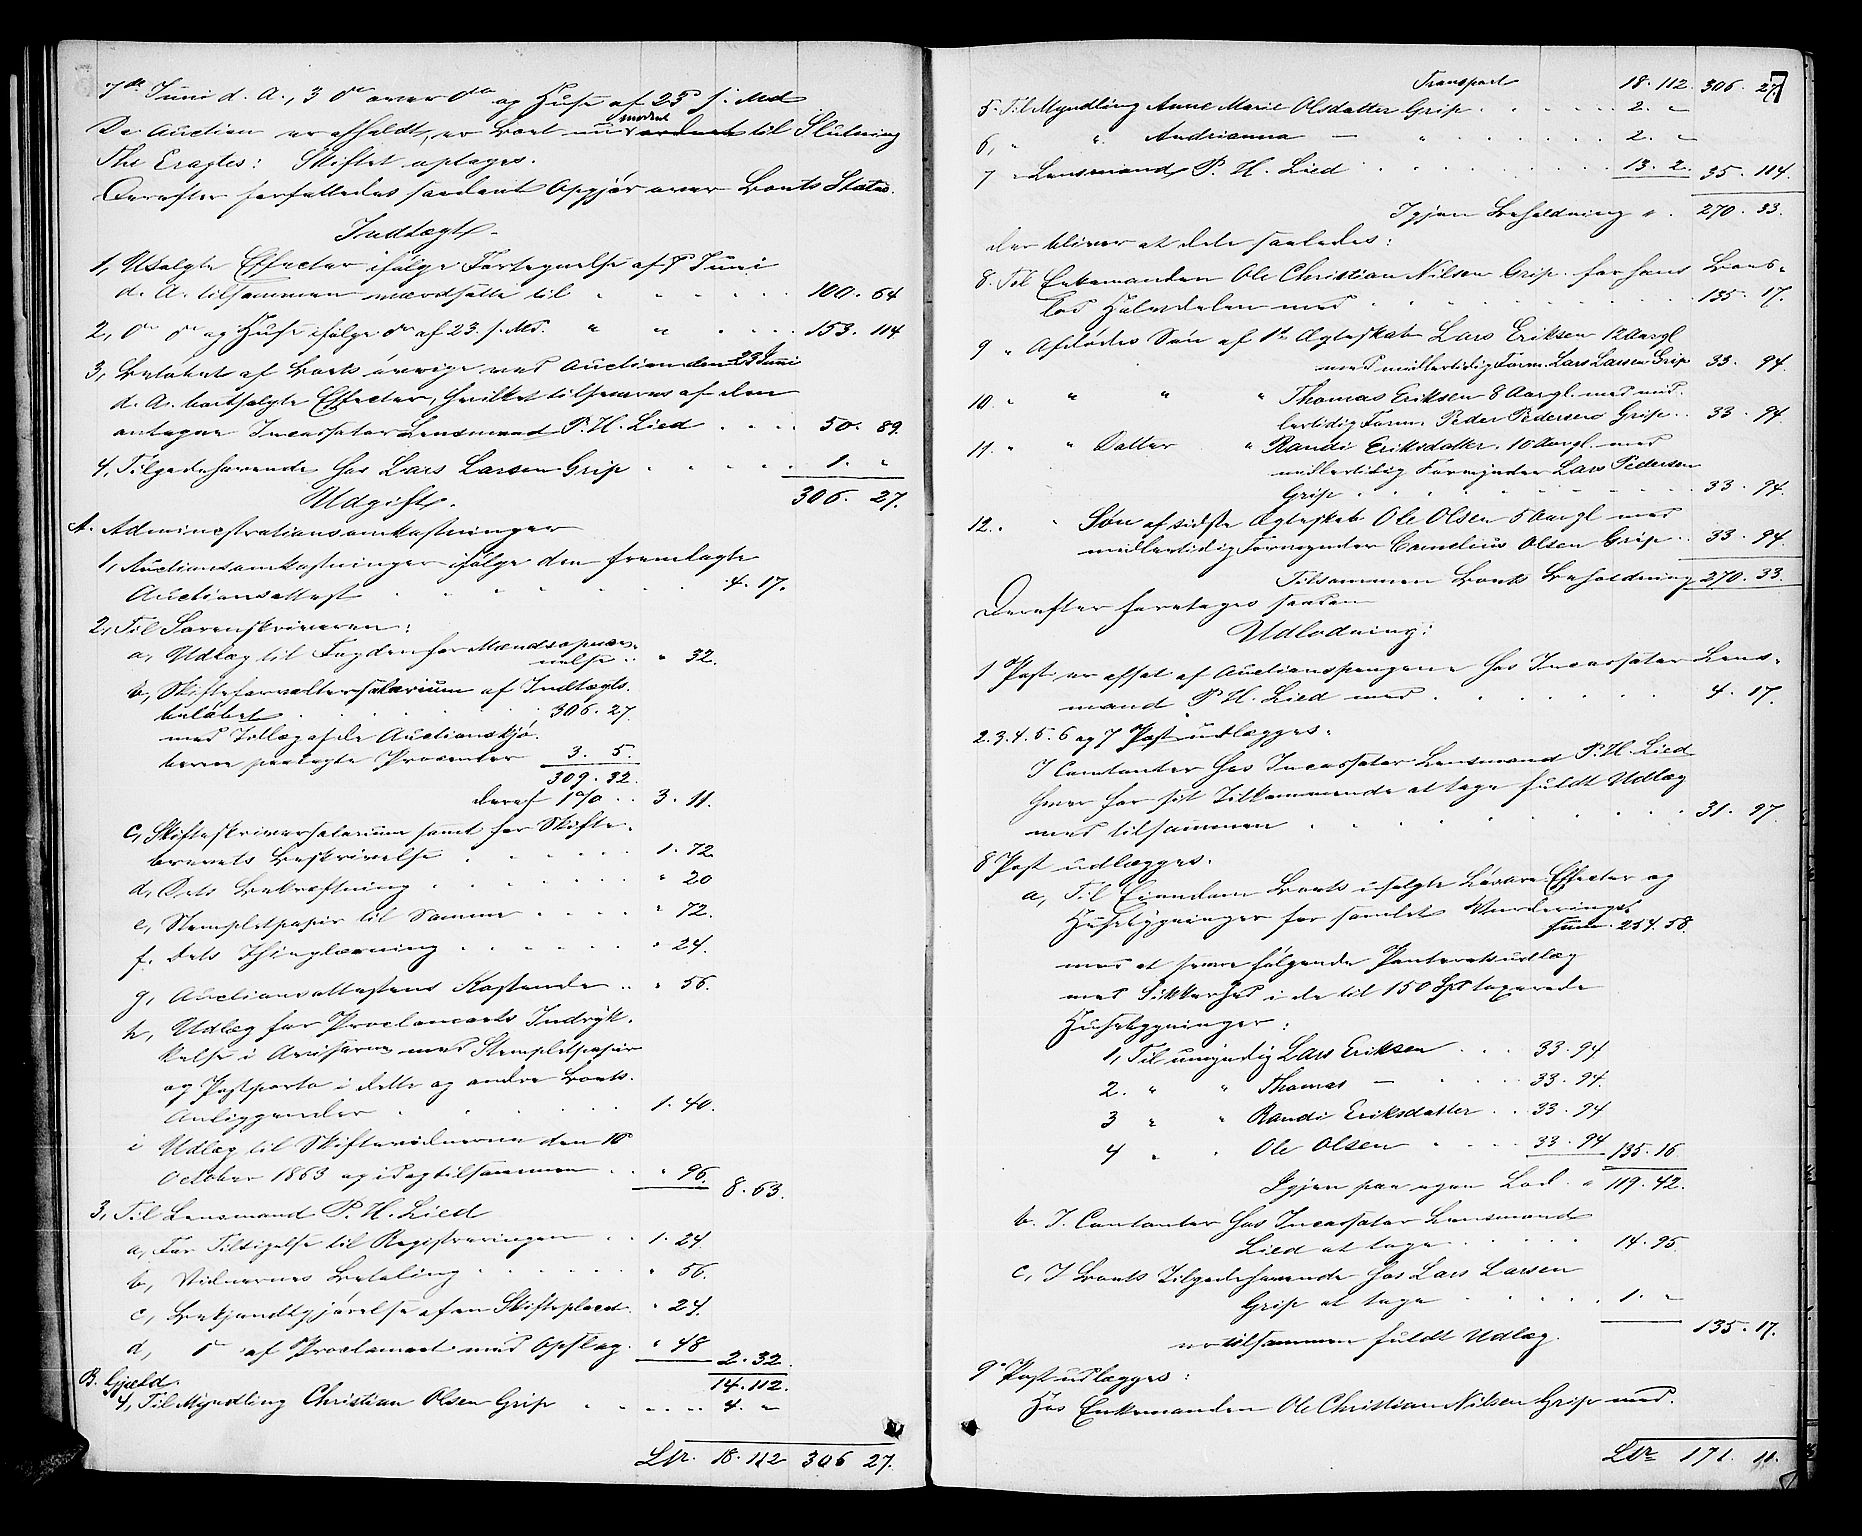 7de Juni d. A., 3 do over do og Huse af 23 s. Md
Da Auction er afholdt, er Boet nu modent til Slutning
Thi Eragtes: Skiftet optages.
Derefter forfattedes saadant Opgjør over Boets Status.
Indtægt.
1, Usolgte Effecter ifølge Fortegnelse af 7 Juni
d. A. tilsammen værdsatte til 100. 64
2, do do og Huse ifølge do af 23. s. Md. 153. 114
3, Beløbet af Boets øvrige ved Auction den 23 Juni
d. A. bortsolgte Effecter, hvilket tilsvares af den
antagne Incassator Lensmand P. H. Lied 50. 89.
4, Tilgodehavende hos Lars Larsen Grip 1. "
306. 27.
Udgift.
A. Administrationsomkostninger
1, Auctionsomkostninger ifølge den fremlagte
Auctionsattest 4. 17.
2, Til Sorenskriveren:
a, Udlæg til Fogden for Mændsopnæv-
nelse " 32.
b, Skifteforvaltersalarium af Indtægts-
beløbet 306. 27
med Tillæg af de Auctionskjø-
berne paalagte Procenter 3. 5.
309. 32.
deraf 1 % 3. 11.
c, Skifteskriversalarium samt for Skifte-
brevets Beskrivelse 1. 72.
d, Dets Bekræftning " 20
e, Stempletpapir til Samme " 72.
f. Dets Thinglæsning " 24.
g, Auctionsattestens Kostende " 56.
h, Udlæg for Proclamaets Indryk-
kelse i Aviserne med Stempletpapir
og Postporto i dette og andre Boets
Anliggender 1. 40.
i Udlæg til Skiftevidnerne den 10
October 1863 og idag tilsammen " 96.
8. 63.
3, Til Lensmand P. H. Lied
a, For Tilsigelse til Registreringen 1. 24.
b, Vidnernes Betaling " 56.
c, Bekjendtgjørelse af en Skifteplacat " 24.
d, do af Proclamaet med Opslag " 48
2. 32.
14. 112.
B. Gjæld.
4, Til Myndling Christian Olsen Grip 4. "
Ltr. 18. 112 306 27.
7
Transport 18. 112. 306. 27
5. Til Myndling Anne Marie Olsdatter Grip 2. "
6, " " Andrianna — " 2. "
7 " Lensmand P. H. Lied 13. 2. 35. 114.
Igjen Beholdning 270. 33.
der bliver at dele saaledes:
8. Til Enkemanden Ole Christian Nilsen Grip for hans Boes-
lod Halvdelen med 135. 17.
9 " Afdødes Søn af 1te Ægteskab Lars Eriksen 12 Aargl
med midlertidig Form. Lars Larsen Grip 33. 94.
10. " " " " Thomas Eriksen 8 Aargl. med mid-
lertidig Form. Peder Pedersen Grip 33. 94.
11. " " Datter " Randi Eriksdatter 10 Aargl. med
midlertidig Formynder Lars Pedersen
Grip 33. 94.
12. " " Søn af sidste Ægteskab Ole Olsen 5 Aargl med
midlertidig Formynder Cornelius Olsen Grip 33. 94.
Tilsammen Boets Beholdning 270. 33.
Derefter foretoges saadan
Udlodning:
1 Post er afsat af Auctionspengene hos Incassator Lens-
mand P. H. Lied med 4. 17.
2. 3. 4. 5. 6 og 7 Post udlægges:
I Contanter hos Incassator Lensmand P. H. Lied
hver for sit Tilkommende at tage fuldt Udlæg
med tilsammen 31. 97.
8 Post udlægges:
a, Til Eiendom Boets usolgte Løsøre Effecter og
Husebygninger for samlet Vurderings-
sum 254. 58.
mod at svare følgende Panteretsudlæg
med Sikkerhed i de til 150 Spd taxerede
Husebygninger:
1, Til umyndig Lars Eriksen 33. 94
2. " " Thomas — 33. 94.
3 " " Randi Eriksdatter 33. 94
4 " " Ole Olsen 33. 94 135. 16
Igjen paa egen Lod 119. 42.
b. I Contanter hos Incassator Lensmand
Lied at tage 14. 95.
c, I Boets Tilgodehavende hos Lars Larsen
Grip at tage 1. "
er tilsammen fuldt Udlæg. 135. 17.
9 Post udlægges:
Hos Enkemanden Ole Christian Nilsen Grip med.
Ltr 171. 11.